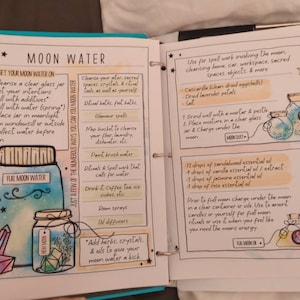 MOON WATER
GET YOUR MOON WATER ON
cleanse a clear glass jar
set your intentions
fill with additives*
fill with water (spring*)
Place jar on moonlight
windowsill or outside
collect water before
JUST A FEW OF THE NUMEROUS WAYS YOU CAN USE MOON WATER
Cleanse your altar, sacred
spaces, crystals, & ritual
tools as well as yourself
Ritual baths, foot baths
Glamour spells
Mop bucket to cleanse
your floor, laundry,
dishwasher, etc.
Paint brush water
Blends & spells that call
for water
Drink it. Coffee, tea, ice
cubes, etc.
Room sprays
Oil diffusers
*Add herbs, crystals,
& oils to give your
moon water a kick
FULL MOON WATER
Use for spell work involving the moon,
cleansing home, car, workspace, sacred
spaces, objects, & more
Cascarilla (clean dried eggshells)
Dried lavender petals
Salt
Grind well with a mortar & pestle
Place mixture in a clear glass
jar & charge under the
moon
MOON DUST
12 drops of sandalwood essential oil
9 drops of vanilla essential oil / extract
9 drops of jasmine essential oil
6 drops of rose essential oil
Prior to full moon charge under the moon
in a clear container or vile. Use to anoint
candles or yourself for full moon
rituals or use it when you feel
you need the moons energy
FULL MOON OIL